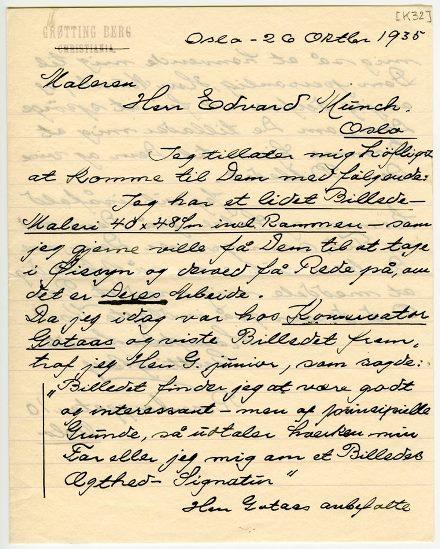 [K32]
GRØTTING BERG
CHRISTIANIA.
Oslo - 26 Oktber 1935
Maleren
Herr Edvard Munch.
Oslo
Jeg tillater mig höfligst
at komme til Dem med fölgende:
Jeg har et lidet Billede-
Maleri 40 x 48 c/m incl. Rammen - som
jeg gjerne ville få Dem til at tage
i Øiesyn og derved få Rede på, om
det er Deres Arbeide.
Da jeg idag var hos Konservator
Gotaas og viste Billedet frem,
traf jeg Herr G. junior, som sagde:
"Billedet finder jeg at være godt
og interessant - men af principielle
Grunde, så udtaler hverken min
Far eller jeg mig om et Billedes
Ægthed - Signatur"
Herr Gotaas anbefalte